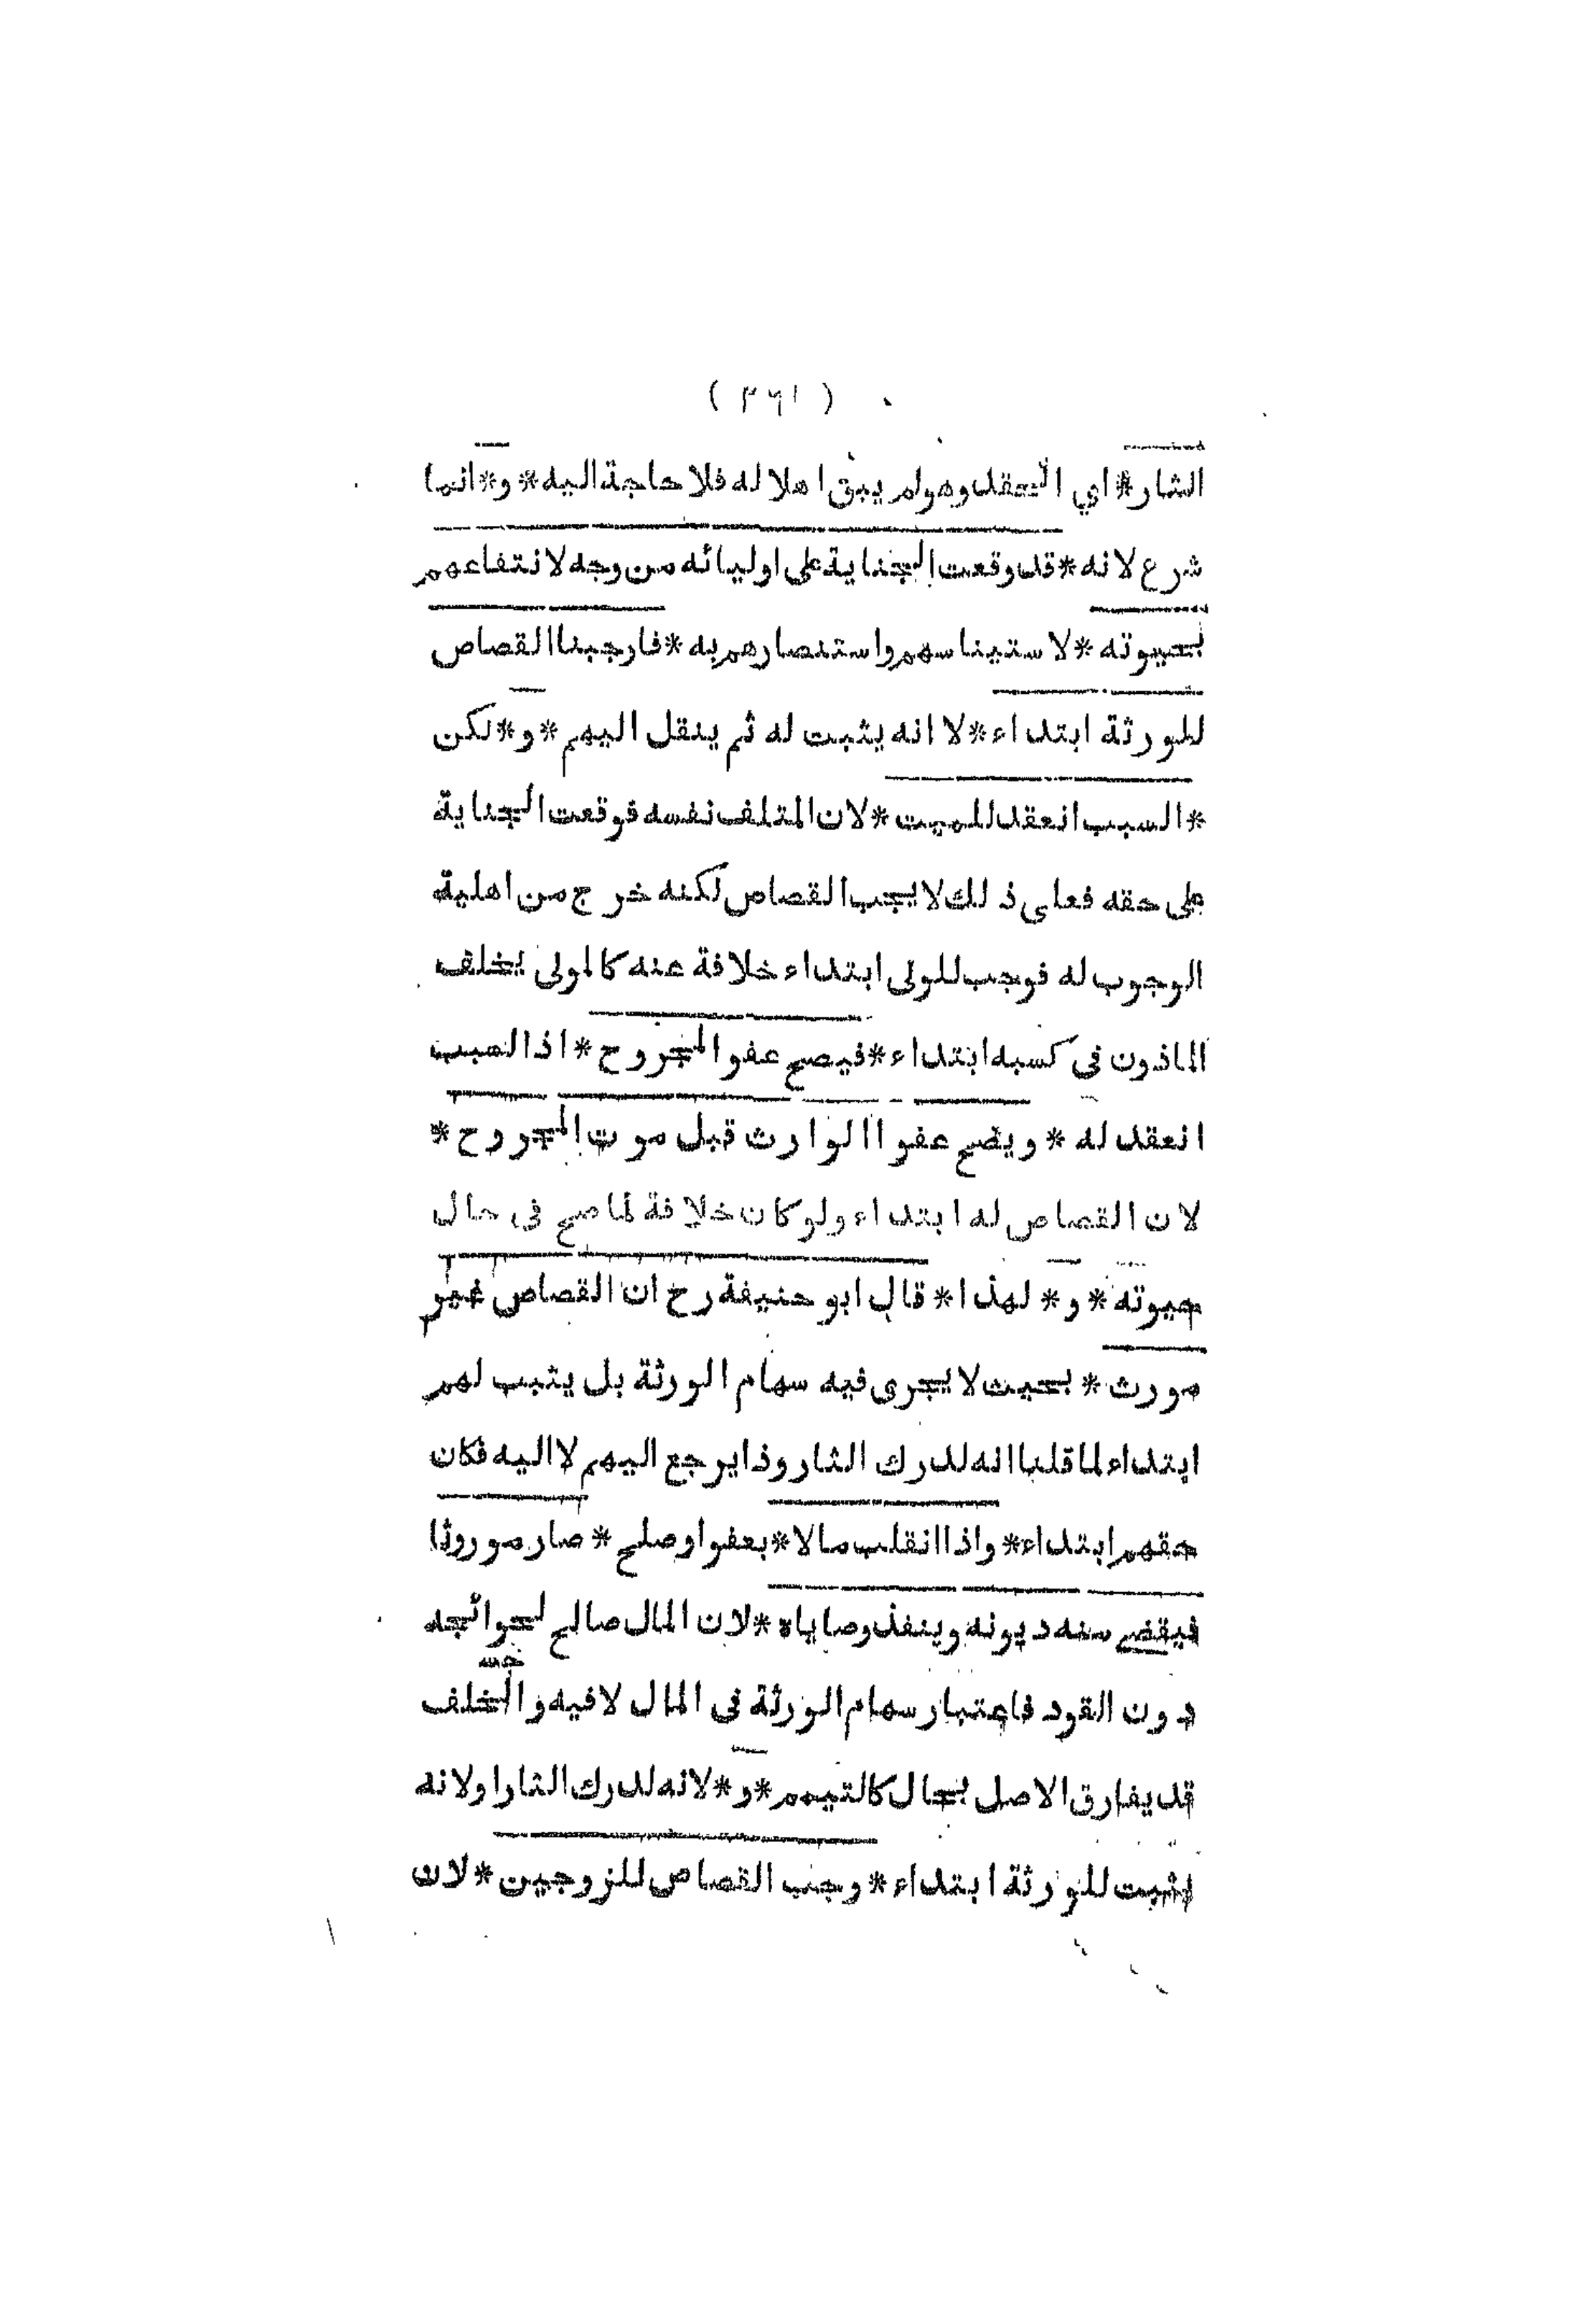 ( ٣٦١ )
الثار * اي الحقد وهو لم يبق اهلا له فلا حاجة اليه * و * انما
شرع لانه * قد وقعت الجناية على اوليائه من وجه لانتفاعهم
بحيوته * لاستيناسهم واستنصارهم به * فاوجبنا القصاص
للورثة ابتداء * لا انه يثبت له ثم ينقل اليهم * و * لكن
* السبب انعقد للميت * لان المتلف نفسه فوقعت الجناية
على حقه فعلى ذلك لا يجب القصاص لكنه خرج من اهلية
الوجوب له فوجب للولى ابتداء خلافة عنه كالمولى يخلف
الماذون فى كسبه ابتداء * فيصح عفو المجروح * اذ السبب
انعقد له * ويصح عفو الوارث قبل موت المجروح *
لان القصاص له ابتداء ولو كان خلافة لما صح فى حال
حيوته * و * لهذا * قال ابو حنيفة رح ان القصاص غير
مورث * بحيث لا يجرى فيه سهام الورثة بل يثبت لهم
ابتداء لما قلنا انه لدرك الثار وذا يرجع اليهم لا اليه فكان
حقهم ابتداء * واذا انقلب مالا * بعفو اوصلح * صار موروثا
فيقضى منه ديونه وينفذ وصاياه * لان المال صالح لحوائجه
دون القود فاعتبار سهام الورثة فى المال لا فيه والخلف
قد يفارق الاصل بحال كالتيمم * و * لانه لدرك الثار اولانه
يثبت للورثة ابتداء * وجب القصاص للزوجين * لان